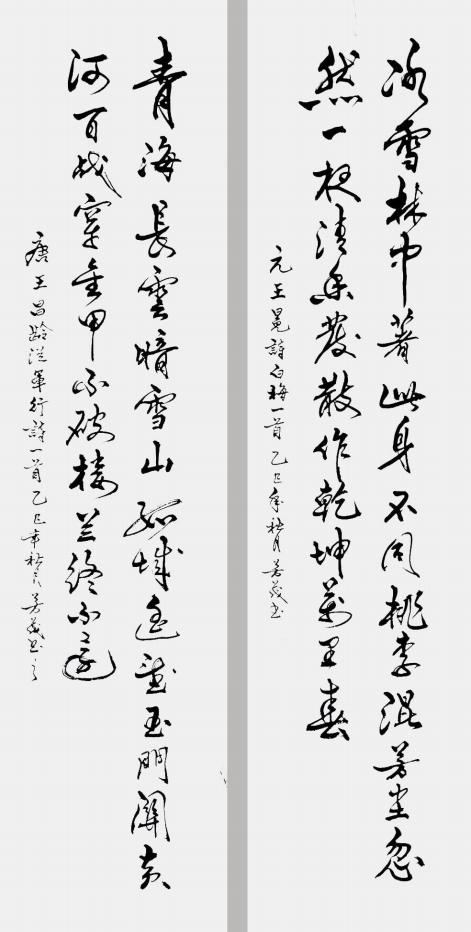 冰雪林中著此身不同桃李混芳尘忽
然一夜清香發散作乾坤萬里春
元王冕詩白梅一首 乙巳年秋月 芳茂书
青海長雲暗雪山孤城遥望玉門關黄
河百战穿金甲不破楼兰終不還
唐王昌龄從軍行詩一首乙巳年秋月芳茂书之